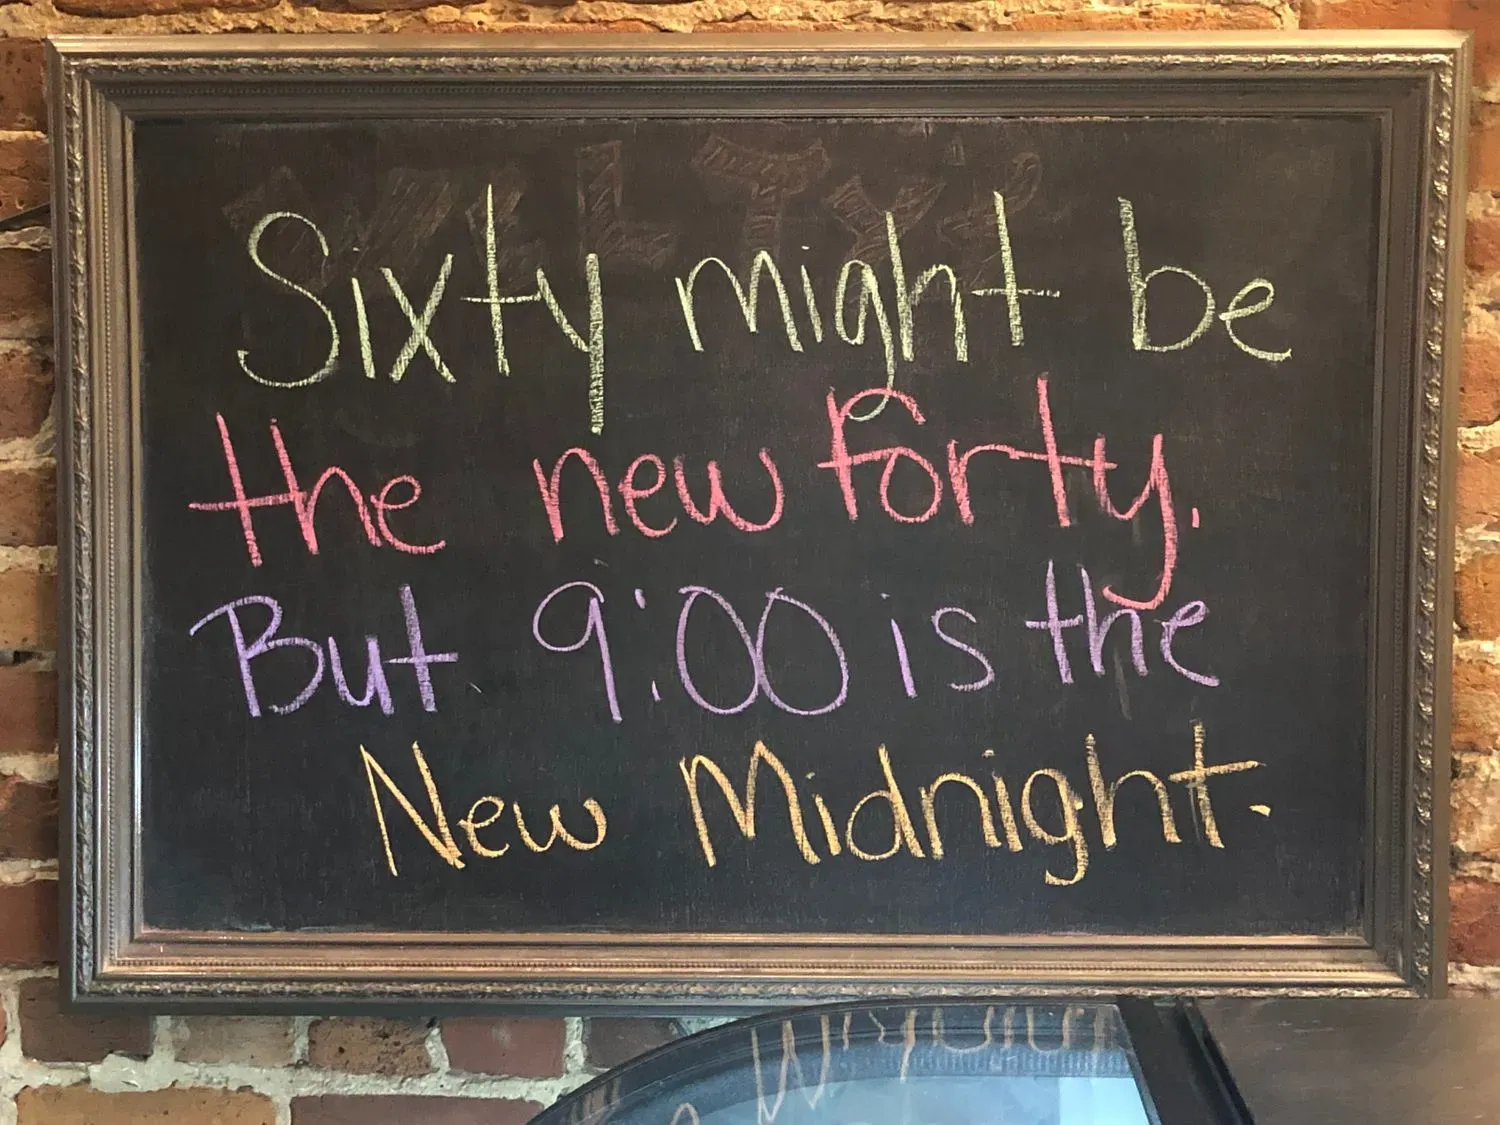 Sixty might be
the new forty.
But 9:00 is the
New Midnight.